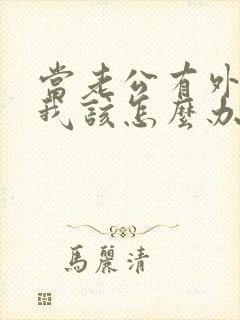 當老公有外
我該怎麼办
馬麗清